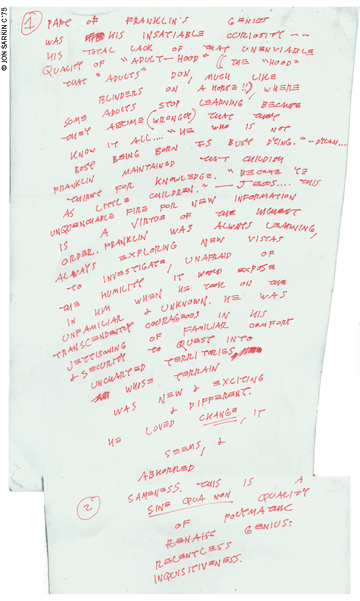 © JON SARKIN C'75
1 PART OF FRANKLIN'S GENIUS
WAS HIS INSATIABLE CURIOSITY --
HIS TOTAL LACK OF THAT UNENVIABLE
QUALITY OF "ADULT-HOOD" (THE "HOOD"
THAT "ADULTS" DON, MUCH LIKE
BLINDERS ON A HORSE!!), WHERE
SOME ADULTS STOP LEARNING, BECAUSE
THEY ASSUME (WRONGLY) THAT THEY
KNOW IT ALL... "HE WHO IS NOT
BUSY BEING BORN IS BUSY DYING." - DYLAN...
FRANKLIN MAINTAINED THAT CHILDISH
THIRST FOR KNOWLEDGE. "BECOME YE
AS LITTLE CHILDREN." - JESUS.... THIS
UNQUENCHABLE FIRE FOR NEW INFORMATION
IS A VIRTUE OF THE HIGHEST
ORDER. FRANKLIN WAS ALWAYS LEARNING,
ALWAYS EXPLORING NEW VISTAS
TO INVESTIGATE, UNAFRAID OF
THE HUMILITY IT WOULD EXPOSE
IN HIM WHEN HE TOOK ON THE
UNFAMILIAR & UNKNOWN. HE WAS
TRANSCENDENTLY COURAGEOUS IN HIS
JETTISONING OF FAMILIAR COMFORT
& SECURITY TO QUEST INTO
UNCHARTED TERRITORIES
WHOSE TERRAIN
WAS NEW & EXCITING
& DIFFERENT.
HE LOVED CHANGE, IT
SEEMS, &
ABHORRED
2 SAMENESS. THIS IS A
SINE QUA NON QUALITY
OF POLYMATHIC
GENIUS:
RELENTLESS
INQUISITIVENESS.